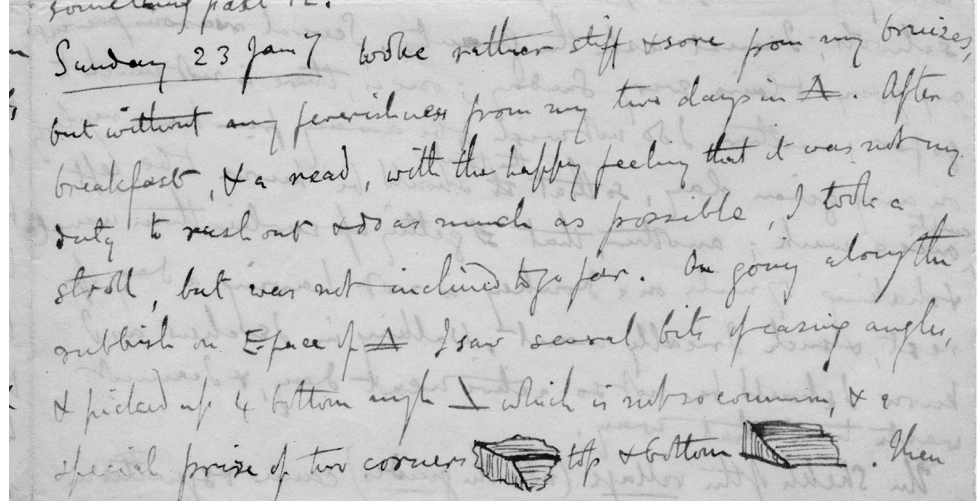 something past 12.
Sunday 23 Jany woke rather stiff & sore from my bruizes,
but without any feverishness from my two days in △. After
breakfast, & a read, with the happy feeling that it was not my
duty to rush out & do as much as possible, I took a
stroll, but was not inclined to go far. In going along the
rubbish on E face of △ I saw several bits of casing angles,
& picked up 4 bottom angle which is not so common, & a
special prize of two corners top & bottom . Then